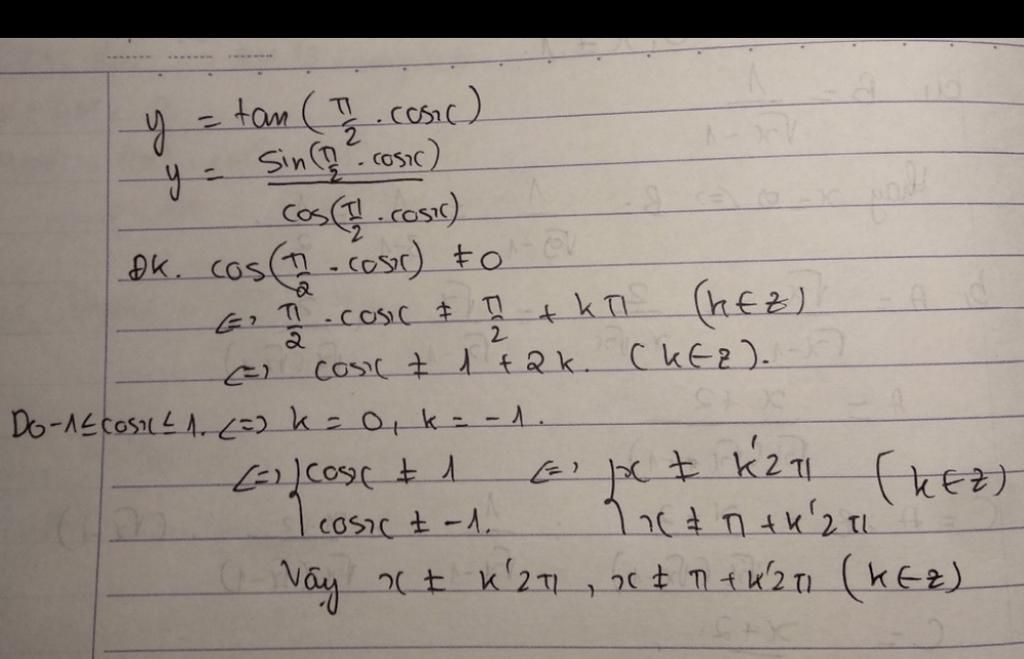 y = tan(π/2 . cosx)
y = sin(π/2 . cosx) / cos(π/2 . cosx)
ĐK. cos(π/2 . cosx) ≠ 0
<=> π/2 . cosx ≠ π/2 + kπ (k∈z)
<=> cosx ≠ 1 + 2k. (k∈z).
Do -1≤cosx≤1. <=> k = 0, k = -1.
<=> { cosx ≠ 1 <=> { x ≠ k'2π (k∈z)
cosx ≠ -1. x ≠ π + k'2π
Vậy x ≠ k'2π, x ≠ π + k'2π (k∈z)